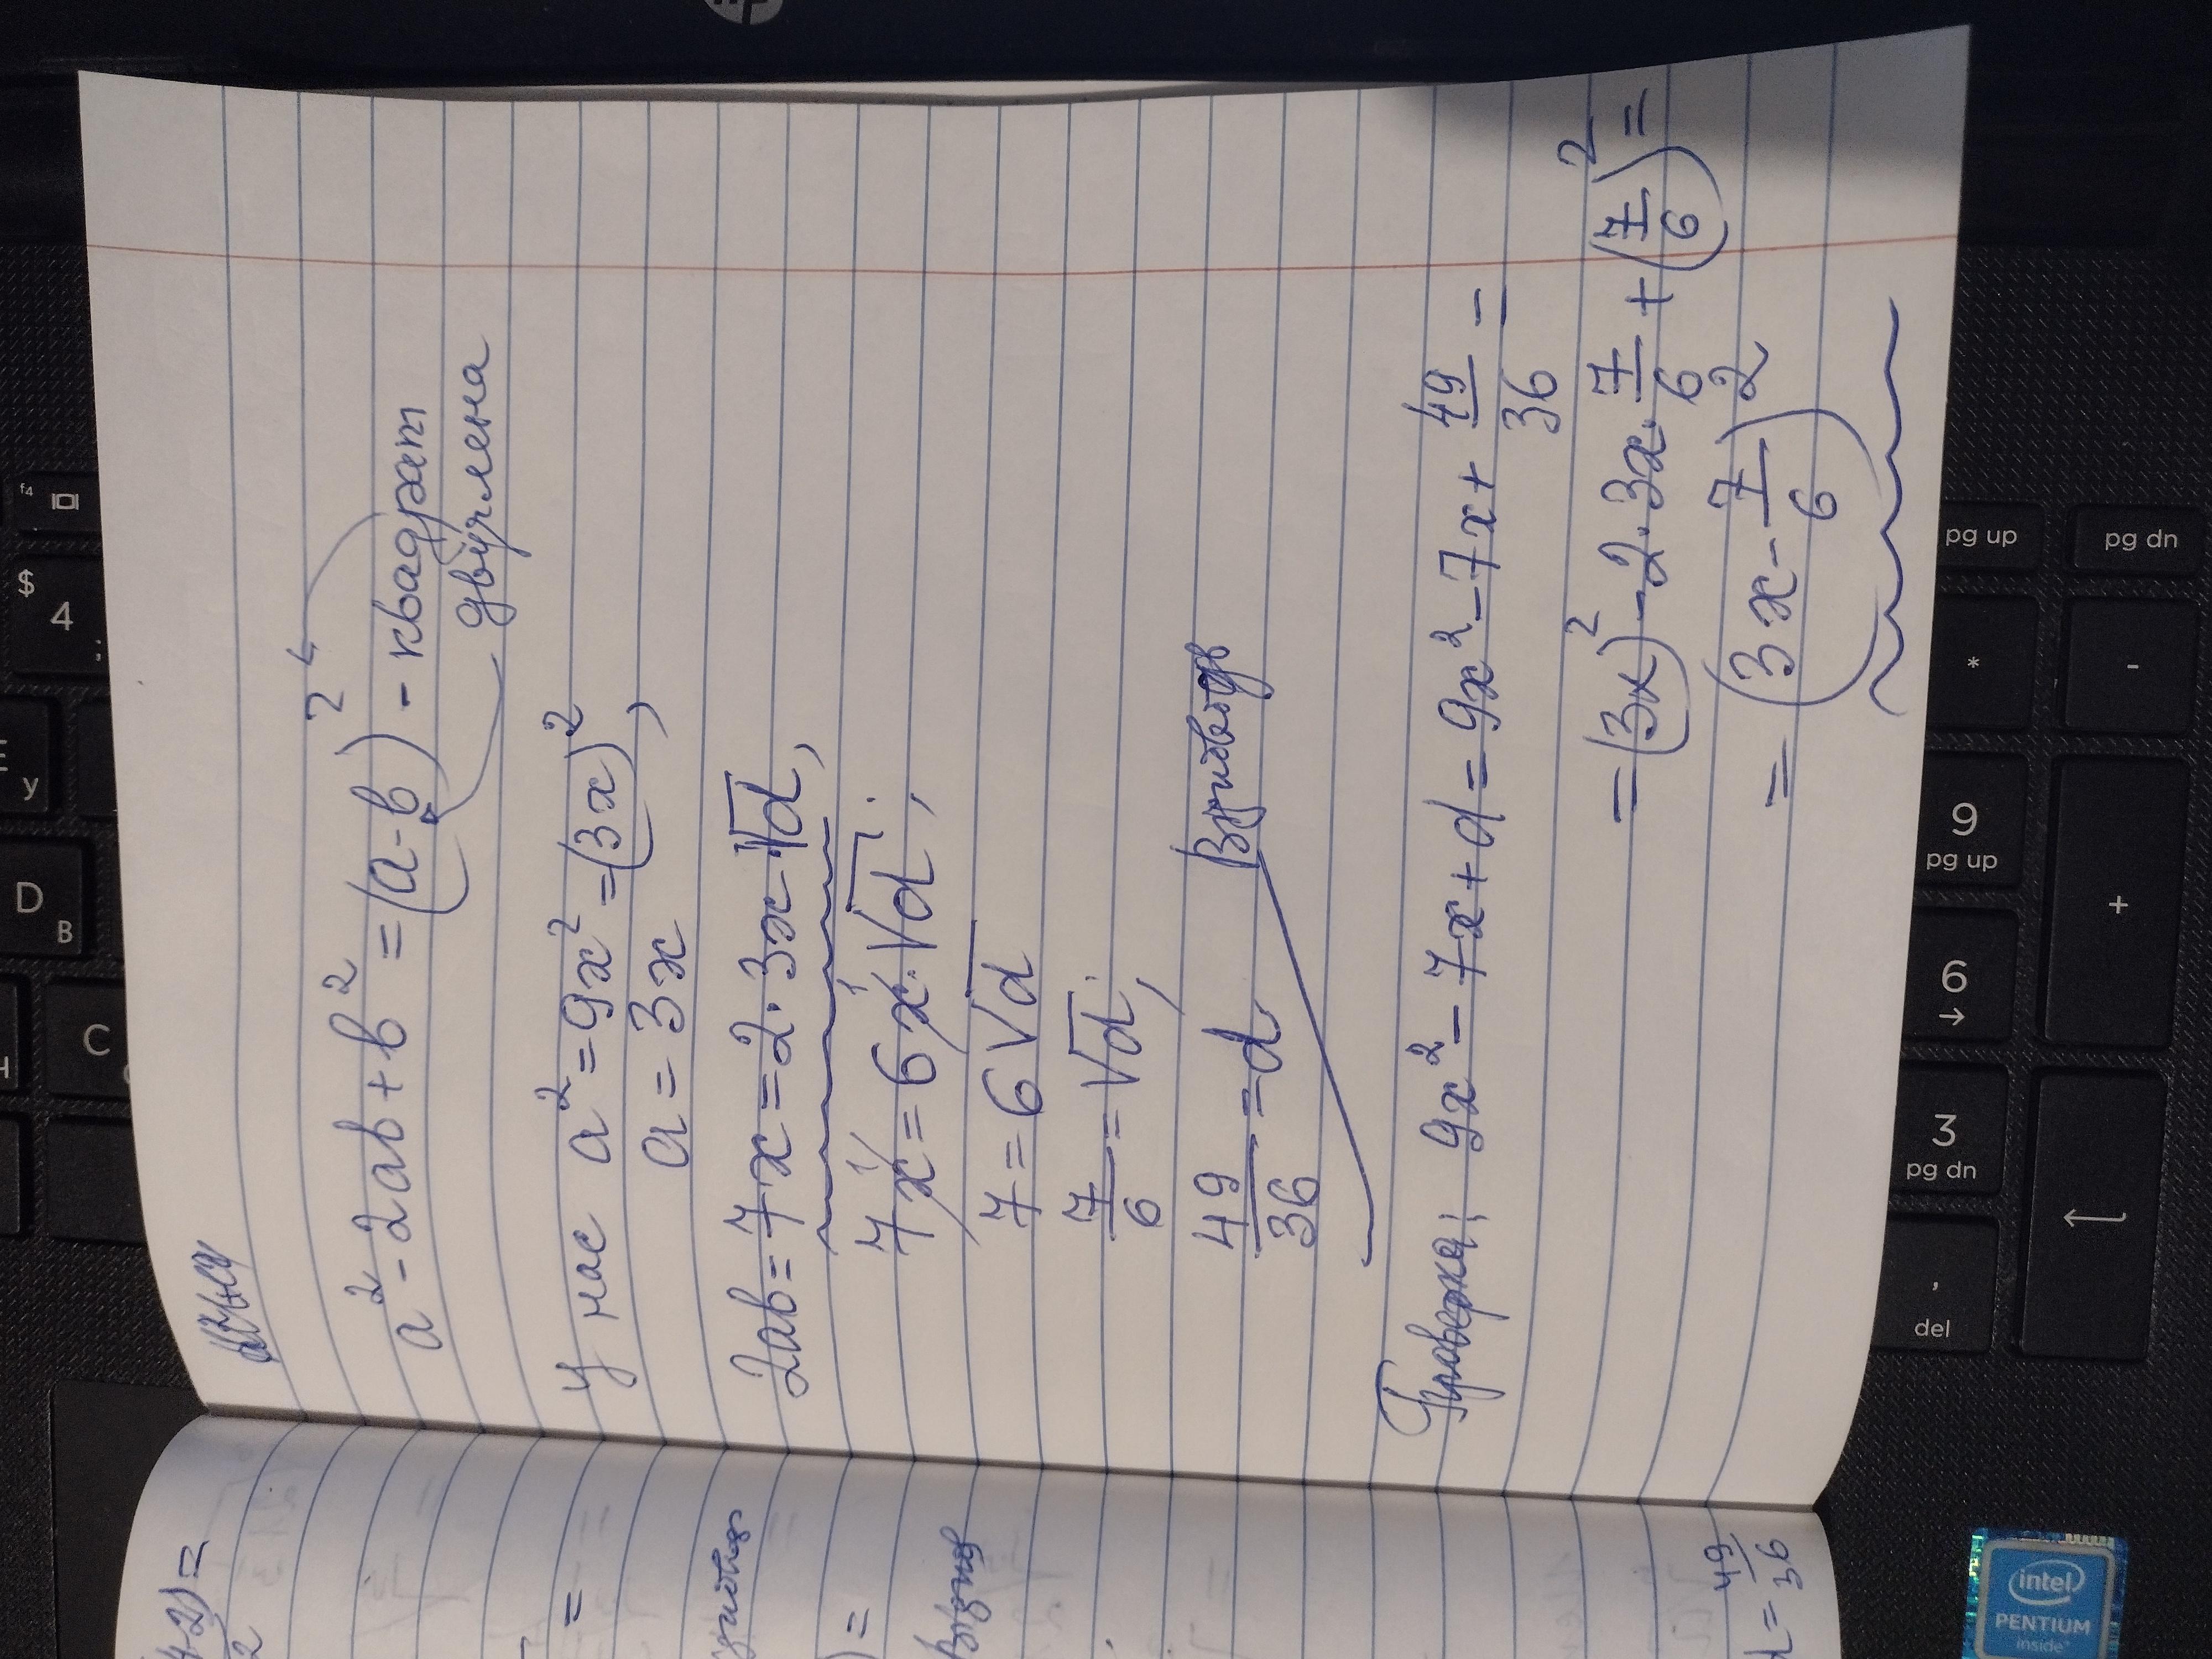 a² - 2ab + b² = (a - b)² - квадрат
двучлена
у нас a² = 9x² = (3x)²
a = 3x,
2ab = 7x = 2·3x·√d,
7x = 6x·√d,
7 = 6√d
7/6 = √d,
49/36 = d
Проверка: 9x² - 7x + d = 9x² - 7x + 49/36 =
= (3x)² - 2·3x·7/6 + (7/6)² =
= (3x - 7/6)²
d = 49/36
$
4
f4
D
B
C
y
pg up
pg dn
*
-
9
pg up
+
6
→
3
pg dn
,
del
intel
PENTIUM
inside